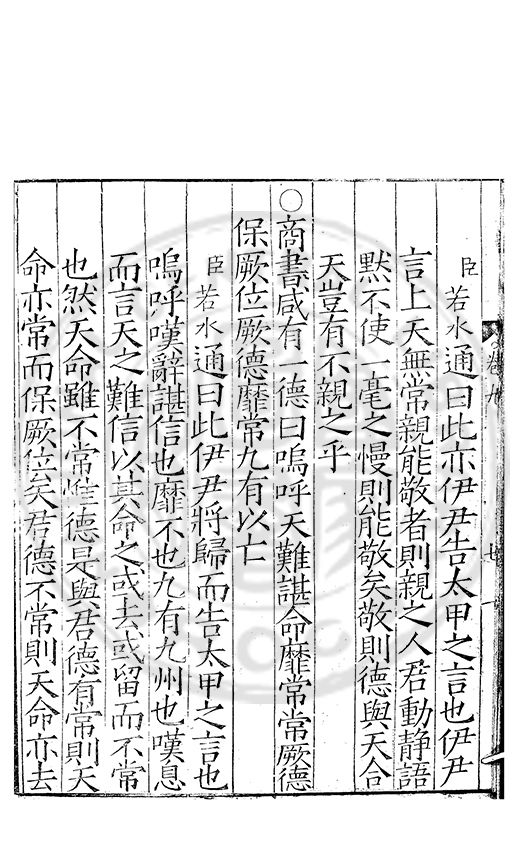 臣若水通曰此亦伊尹告太甲之言也伊尹
言上天無常親能敬者則親之人君動靜語
默不使一毫之慢則能敬矣敬則德與天合
天豈有不親之乎
○商書咸有一德曰嗚呼天難諶命靡常常厥德
保厥位厥德靡常九有以亡
臣若水通曰此伊尹將歸而告太甲之言也
嗚呼嘆辭諶信也靡不也九有九州也嘆息
而言天之難信以其命之或去或留而不常
也然天命雖不常惟德是與君德有常則天
命亦常而保厥位矣君德不常則天命亦去